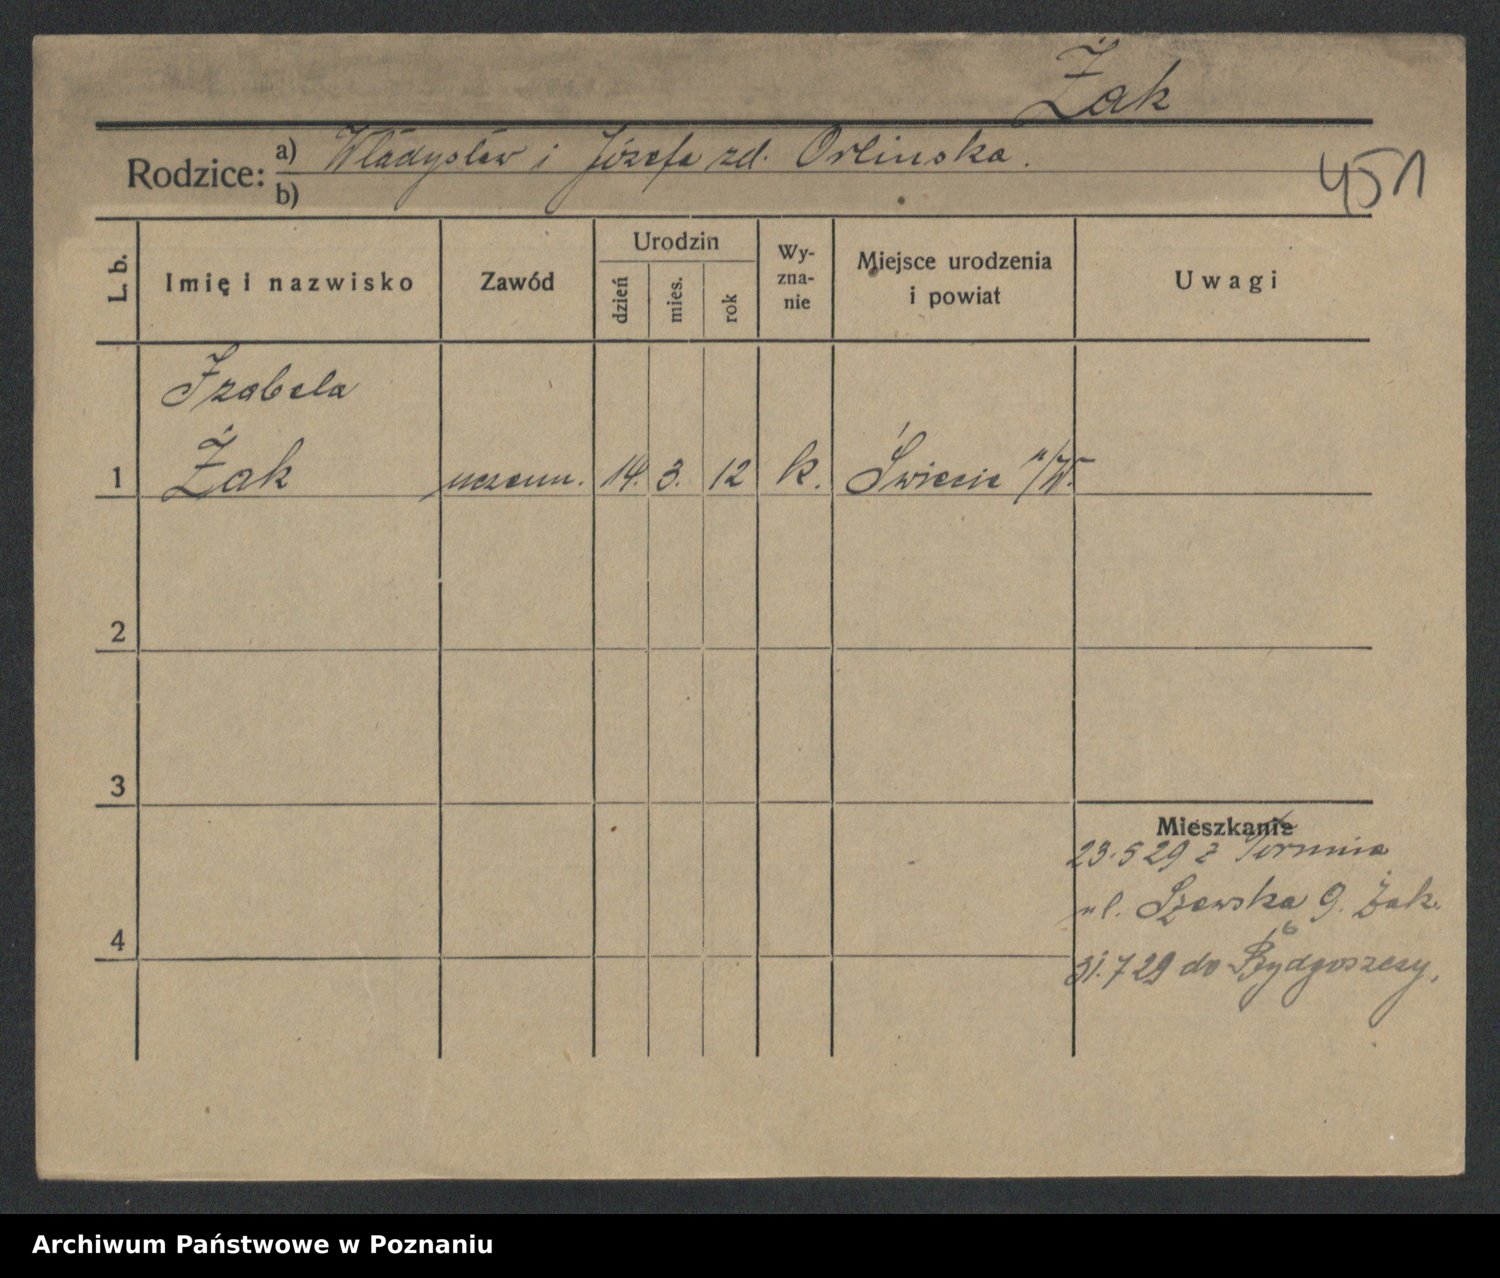 Żak
Rodzice: a) Władysław i Józefa zd. Orlinska.
b)
451
L. b.
Imię i nazwisko
Zawód
Urodzin
dzień
mies.
rok
Wy-
zna-
nie
Miejsce urodzenia
i powiat
Uwagi
Izabela
1 Żak uczenn. 14. 3. 12 k. Świecie n/W.
2
3
Mieszkanie
23.5 29 z Torunia
ul. Szewska 9. Żak.
4
31.7 29 do Bydgoszczy.
Archiwum Państwowe w Poznaniu